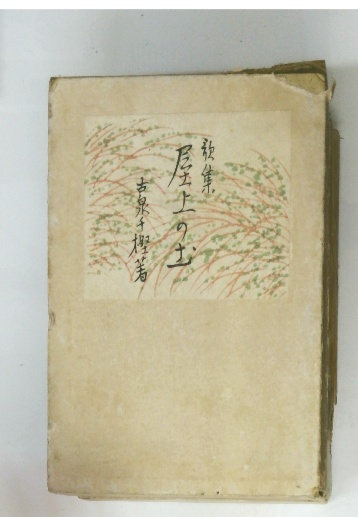 歌集
屋上の土
古泉千樫著